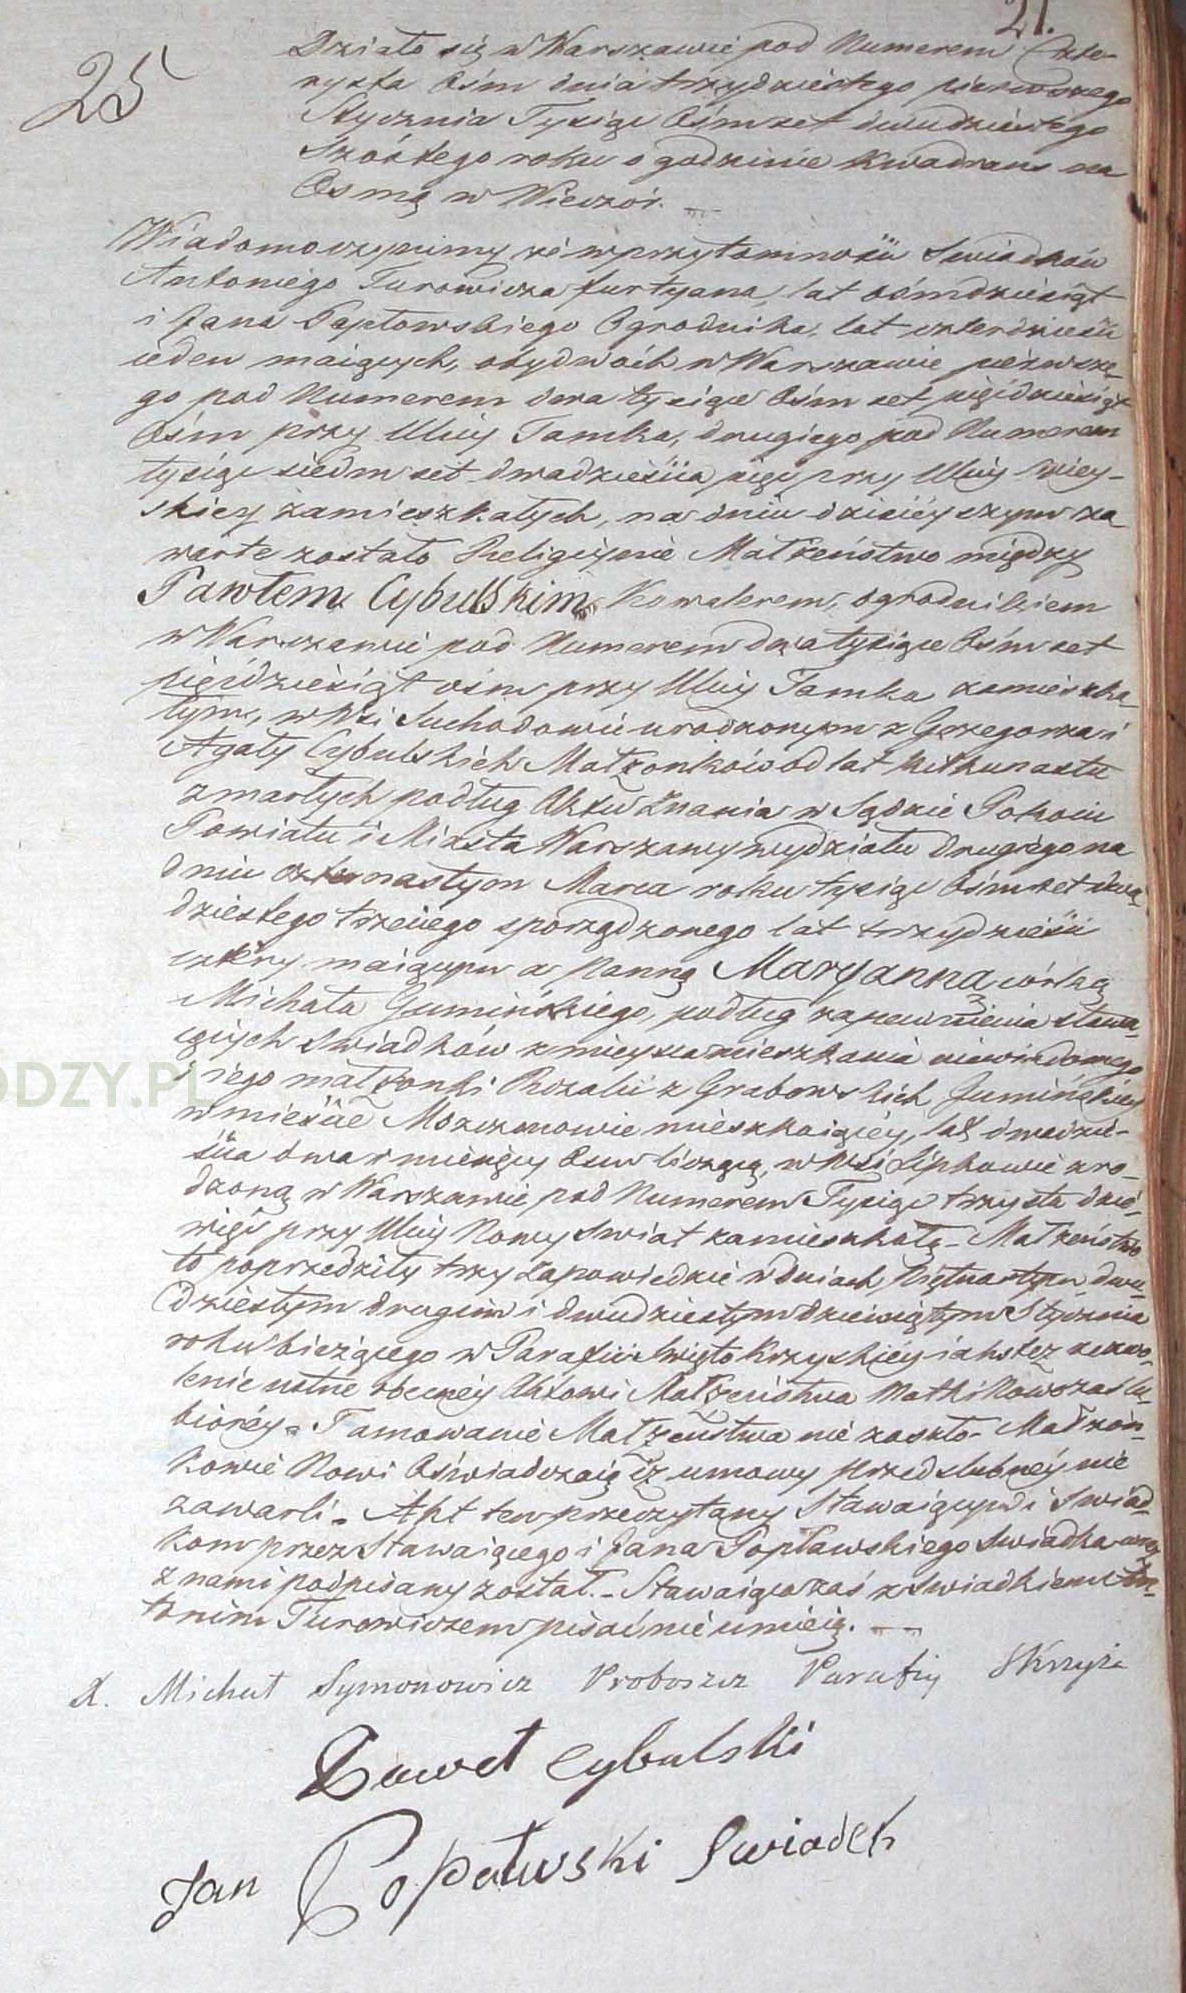 21.
25
Działo się w Warszawie pod Numerem Czte-
rysta Ośm dnia trzydziestego pierwszego
Stycznia Tysiąc Ośmset dwudziestego
Szóstego roku o godzinie kwadrans na
Osmą w Wieczór. —
Wiadomo czynimy że w przytomności Swiadków
Antoniego Turowicza furtyana, lat ośmdziesiąt
i Jana Popłowskiego Ogrodnika, lat czterdzieści
ieden maiących, obydwóch w Warszawie pierwsze-
go pod Numerem dwa tysiące Ośm set pięćdziesiąt
Ośm przy Ulicy Tamka, drugiego pod Numerem
tysiąc siedm set dwadzieścia pięć przy Ulicy Wiey-
skiey zamieszkałych, na dniu dzisieyszym za-
warte zostało Religiynie Małżeństwo między
Pawłem Cybulskim Kawalerem, ogrodnikiem
w Warszawie pod Numerem dwa tysiące Ośm set
pięćdziesiąt ośm przy Ulicy Tamka zamieszka-
łym, w Wsi Suchodowie urodzonym z Grzegorza i
Agaty Cybulskich Małżonków od lat kilkunastu
zmarłych podług Aktu Znania w Sądzie Pokoiu
Powiatu i Miasta Warszawy wydziału Drugiego na
dniu czternastym Marca roku tysiąc Ośmset dwu-
dziestego trzeciego sporządzonego lat trzydzieści
cztery maiącym a Panną Maryanną córką
Michała Gumińskiego, podług zapewnienia stawa-
iących Swiadków z mieysca mieszkania niewiadomego
i iego małżonki Rozalii z Grabowskich Gumińskiey
w mieście Mszczonowie mieszkaiącey, lat dwadzie-
ścia dwa i miesięcy Osm liczącą, w Wsi Lipkowie uro-
dzoną w Warszawie pod Numerem Tysiąc trzysta dzie-
więć przy Ulicy Nowy Swiat zamieszkałą – Małżeństwo
to poprzedziły trzy Zapowiedzie w dniach Piętnastym dwu-
dziestym drugim i dwudziestym dziewiątym Stycznia
roku bieżącego w Parafii Święto Krzyskiey iako też zezwo-
lenie ustne obecney Aktowi Małżeństwa Matki Nowozaślu-
bioney. Tamowanie Małżeństwa nie zaszło – Małżon-
kowie Nowi Oświadczaią iż umowy przedślubney nie
zawarli. – Akt ten przeczytany Stawaiącym i Swiad-
kom przez Stawaiącego i Jana Popławskiego Swiadka oraz
z nami podpisany został. – Stawaiąca zaś z Swiadkiem An-
tonim Turowiczem pisać nie umieią. —
X. Michał Symonowicz Proboszcz Parafiy SKrzyża
Paweł Cybulski
Jan Popałwski Swiadek
ODZY.PL